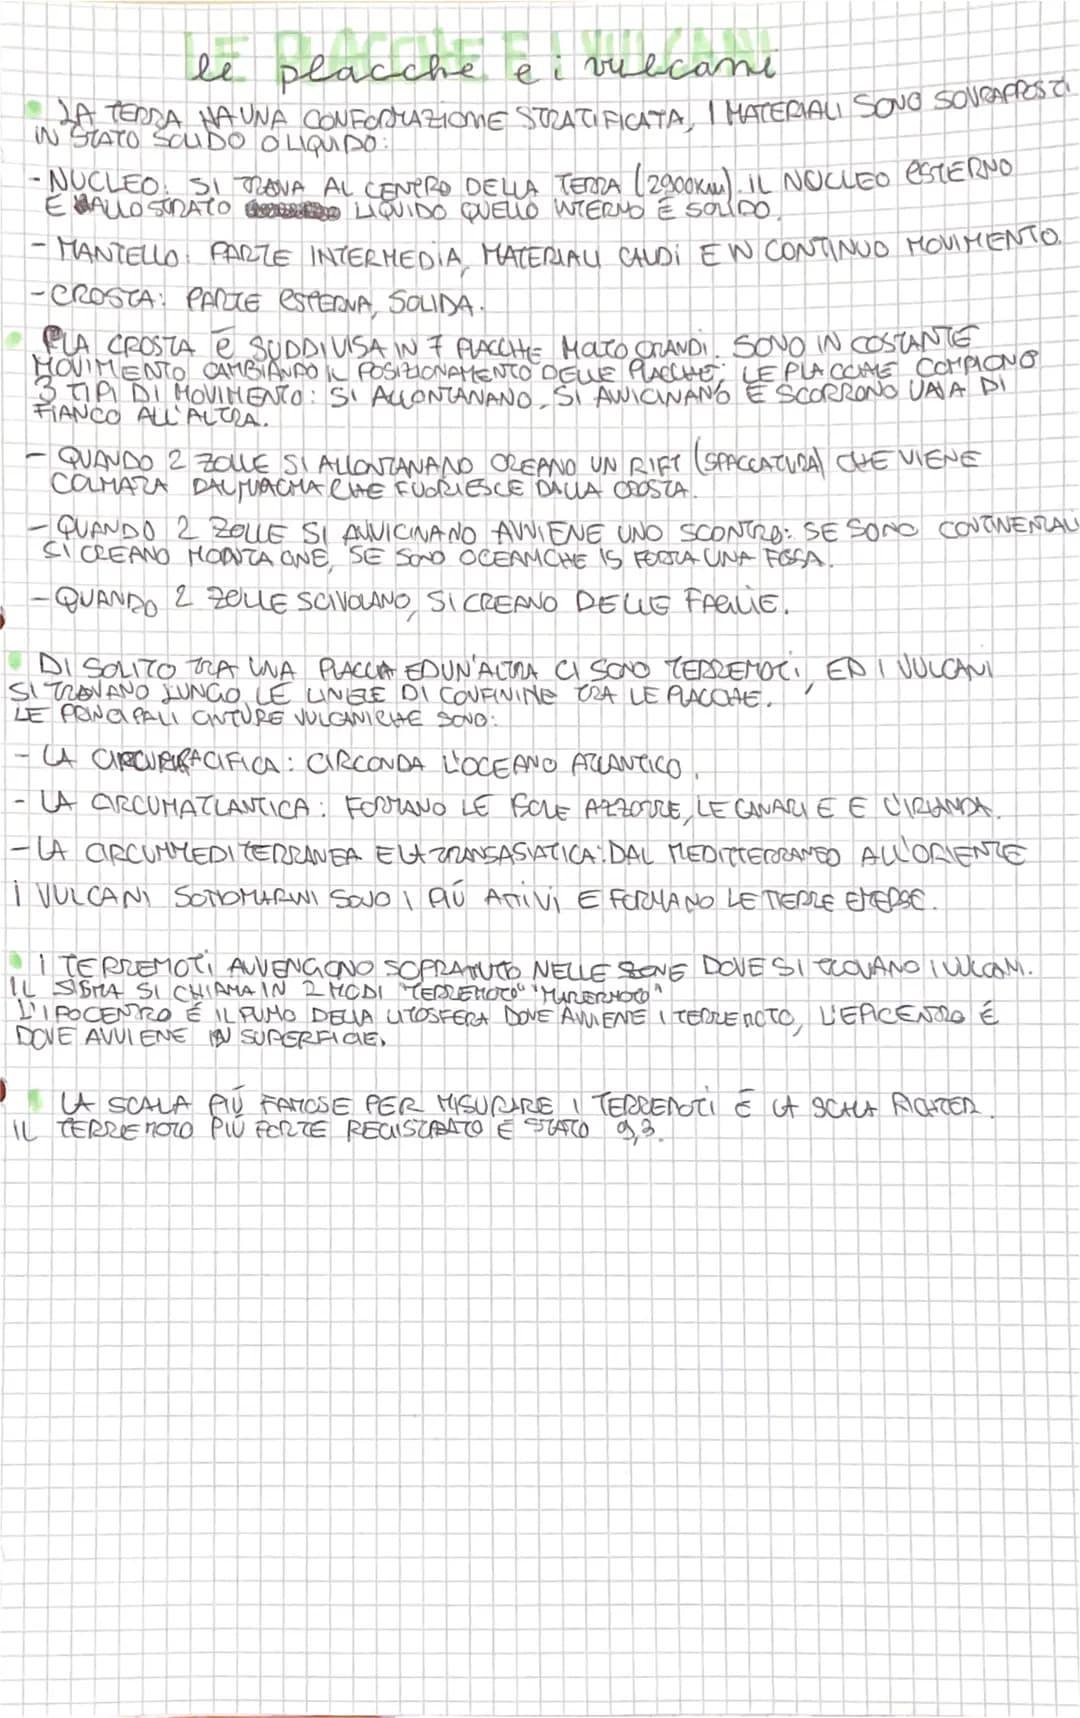 LE PLACCHE E I VULCANI
le placche e i vulcani
LA TERRA HA UNA CONFORMAZIONE STRATIFICATA, I MATERIALI SONO SOVRAPPOSTI
IN STATO SOLIDO O LIQUIDO:
- NUCLEO: SI TROVA AL CENTRO DELLA TERRA (2900Km). IL NUCLEO ESTERNO
E ALLO STRATO LIQUIDO QUELLO INTERNO È SOLIDO.
- MANTELLO: PARTE INTERMEDIA, MATERIALI CALDI E IN CONTINUO MOVIMENTO.
- CROSTA: PARTE ESTERNA, SOLIDA.
LA CROSTA È SUDDIVISA IN 7 PLACCHE MOLTO GRANDI. SONO IN COSTANTE
MOVIMENTO CAMBIANDO IL POSIZIONAMENTO DELLE PLACCHE; LE PLACCHE COMPIONO
3 TIPI DI MOVIMENTO: SI ALLONTANANO, SI AVVICINANO E SCORRONO UNA DI
FIANCO ALL'ALTRA.
- QUANDO 2 ZOLLE SI ALLONTANANO CREANO UN RIFT (SPACCATURA) CHE VIENE
COLMATA DAL MAGMA CHE FUORIESCE DALLA CROSTA.
- QUANDO 2 ZOLLE SI AVVICINANO AVVIENE UNO SCONTRO: SE SONO CONTINENTALI
SI CREANO MONTAGNE, SE SONO OCEANICHE IS FORMA UNA FOSSA.
- QUANDO 2 ZOLLE SCIVOLANO, SI CREANO DELLE FAGLIE.
DI SOLITO TRA UNA PLACCA ED UN'ALTRA CI SONO TERREMOTI, ED I VULCANI
SI TROVANO LUNGO LE LINEE DI CONFININE TRA LE PLACCHE.
LE PRINCIPALI CINTURE VULCANICHE SONO:
- LA CIRCUMPACIFICA: CIRCONDA L'OCEANO ATLANTICO.
- LA CIRCUMATLANTICA: FORMANO LE ISOLE AZZORRE, LE CANARI E E L'IRLANDA.
- LA CIRCUMMEDITERRANEA E LA TRANSASIATICA: DAL MEDITTERRANEO ALL'ORIENTE
I VULCANI SOTTOMARINI SONO I PIÚ ATTIVI E FORMANO LE TERRE EMERSE.
I TERREMOTI AVVENGONO SOPRATTUTO NELLE ZONE DOVE SI TROVANO I VULCANI.
IL SISMA SI CHIAMA IN 2 MODI "TERREMOTO" "MAREMOTO"
L'IPOCENTRO É IL PUNTO DELLA LITOSFERA DOVE AVVIENE I TERREMOTO, L'EPICENTRO É
DOVE AVVIENE IN SUPERFICIE.
LA SCALA PIÚ FAMOSE PER MISURARE I TERREMOTI È LA SCALA RICHTER.
IL TERREMOTO PIÚ FORTE REGISTRATO È STATO 9,3.